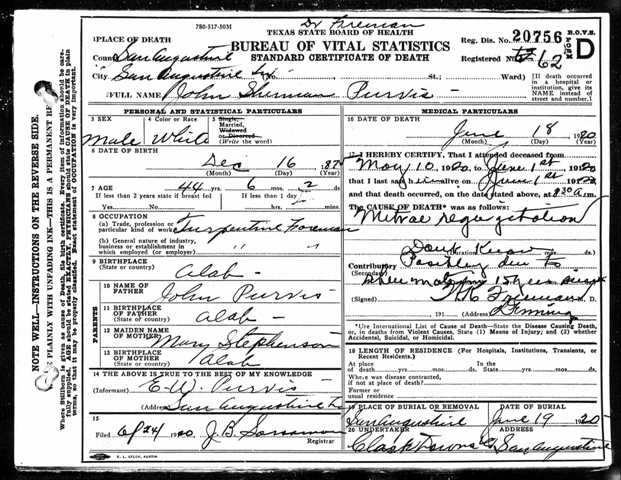 Dr Freeman
780-517-503M
TEXAS STATE BOARD OF HEALTH
BUREAU OF VITAL STATISTICS
STANDARD CERTIFICATE OF DEATH
Reg. Dis. No. 20756
B.O.V.S. FORM D
Registered No. 62
1 PLACE OF DEATH
County San Augustine
City San Augustine Tex No. St.; Ward)
[If death occurred in a hospital or institution, give its NAME instead of street and number.]
2 FULL NAME John Sherman Purvis -
PERSONAL AND STATISTICAL PARTICULARS
3 SEX Male
4 Color or Race White
5 Single, Married, Widowed or Divorced (Write the word)
6 DATE OF BIRTH
Dec 16 1875
(Month) (Day) (Year)
7 AGE 44 yrs. 6 mos. 2 ds.
If less than 2 years state if breast fed
If less than 1 day, hrs. min.
8 OCCUPATION
(a) Trade, profession or particular kind of work Turpentine Foreman
(b) General nature of industry, business or establishment in which employed (or employer) " "
9 BIRTHPLACE
(State or country) Alab -
PARENTS
10 NAME OF FATHER John Purvis
11 BIRTHPLACE OF FATHER
(State or country) Alab -
12 MAIDEN NAME OF MOTHER Mary Stephenson
13 BIRTHPLACE OF MOTHER
(State or country) Alab
14 THE ABOVE IS TRUE TO THE BEST OF MY KNOWLEDGE
(Informant) E.W. Purvis -
(Address) San Augustine Tx
15
6/24/ 1920 J.B. Registrar
MEDICAL PARTICULARS
16 DATE OF DEATH
June 18 1920
(Month) (Day) (Year)
17 I HEREBY CERTIFY, That I attended deceased from
May 10 1920, to June 1st 1920
that I last saw him alive on June 1st 1920
and that death occurred, on the date stated above, at 8 30 a.m.
The CAUSE OF DEATH* was as follows:
Mitral regurgitation
Don't Know
Contributory Possibly due to
(Secondary)
15 yrs
(Signed) Freeman M. D.
191 (Address)
*Use International List of Cause of Death—State the Disease Causing Death, or, in deaths from Violent Causes, State (1) Means of Injury; and (2) whether Accidental, Suicidal, or Homicidal.
18 LENGTH OF RESIDENCE (For Hospitals, Institutions, Transients, or Recent Residents.)
At place of death yrs. mos. ds. In the State yrs. mos. ds.
Where was disease contracted, if not at place of death?
Former or usual residence
19 PLACE OF BURIAL OR REMOVAL San Augustine
DATE OF BURIAL June 19 1920
20 UNDERTAKER Clark Downs Co
ADDRESS San Augustine
E. L. STECK, AUSTIN
NOTE WELL—INSTRUCTIONS ON THE REVERSE SIDE.
PLAINLY WITH UNFADING INK—THIS IS A PERMANENT RE